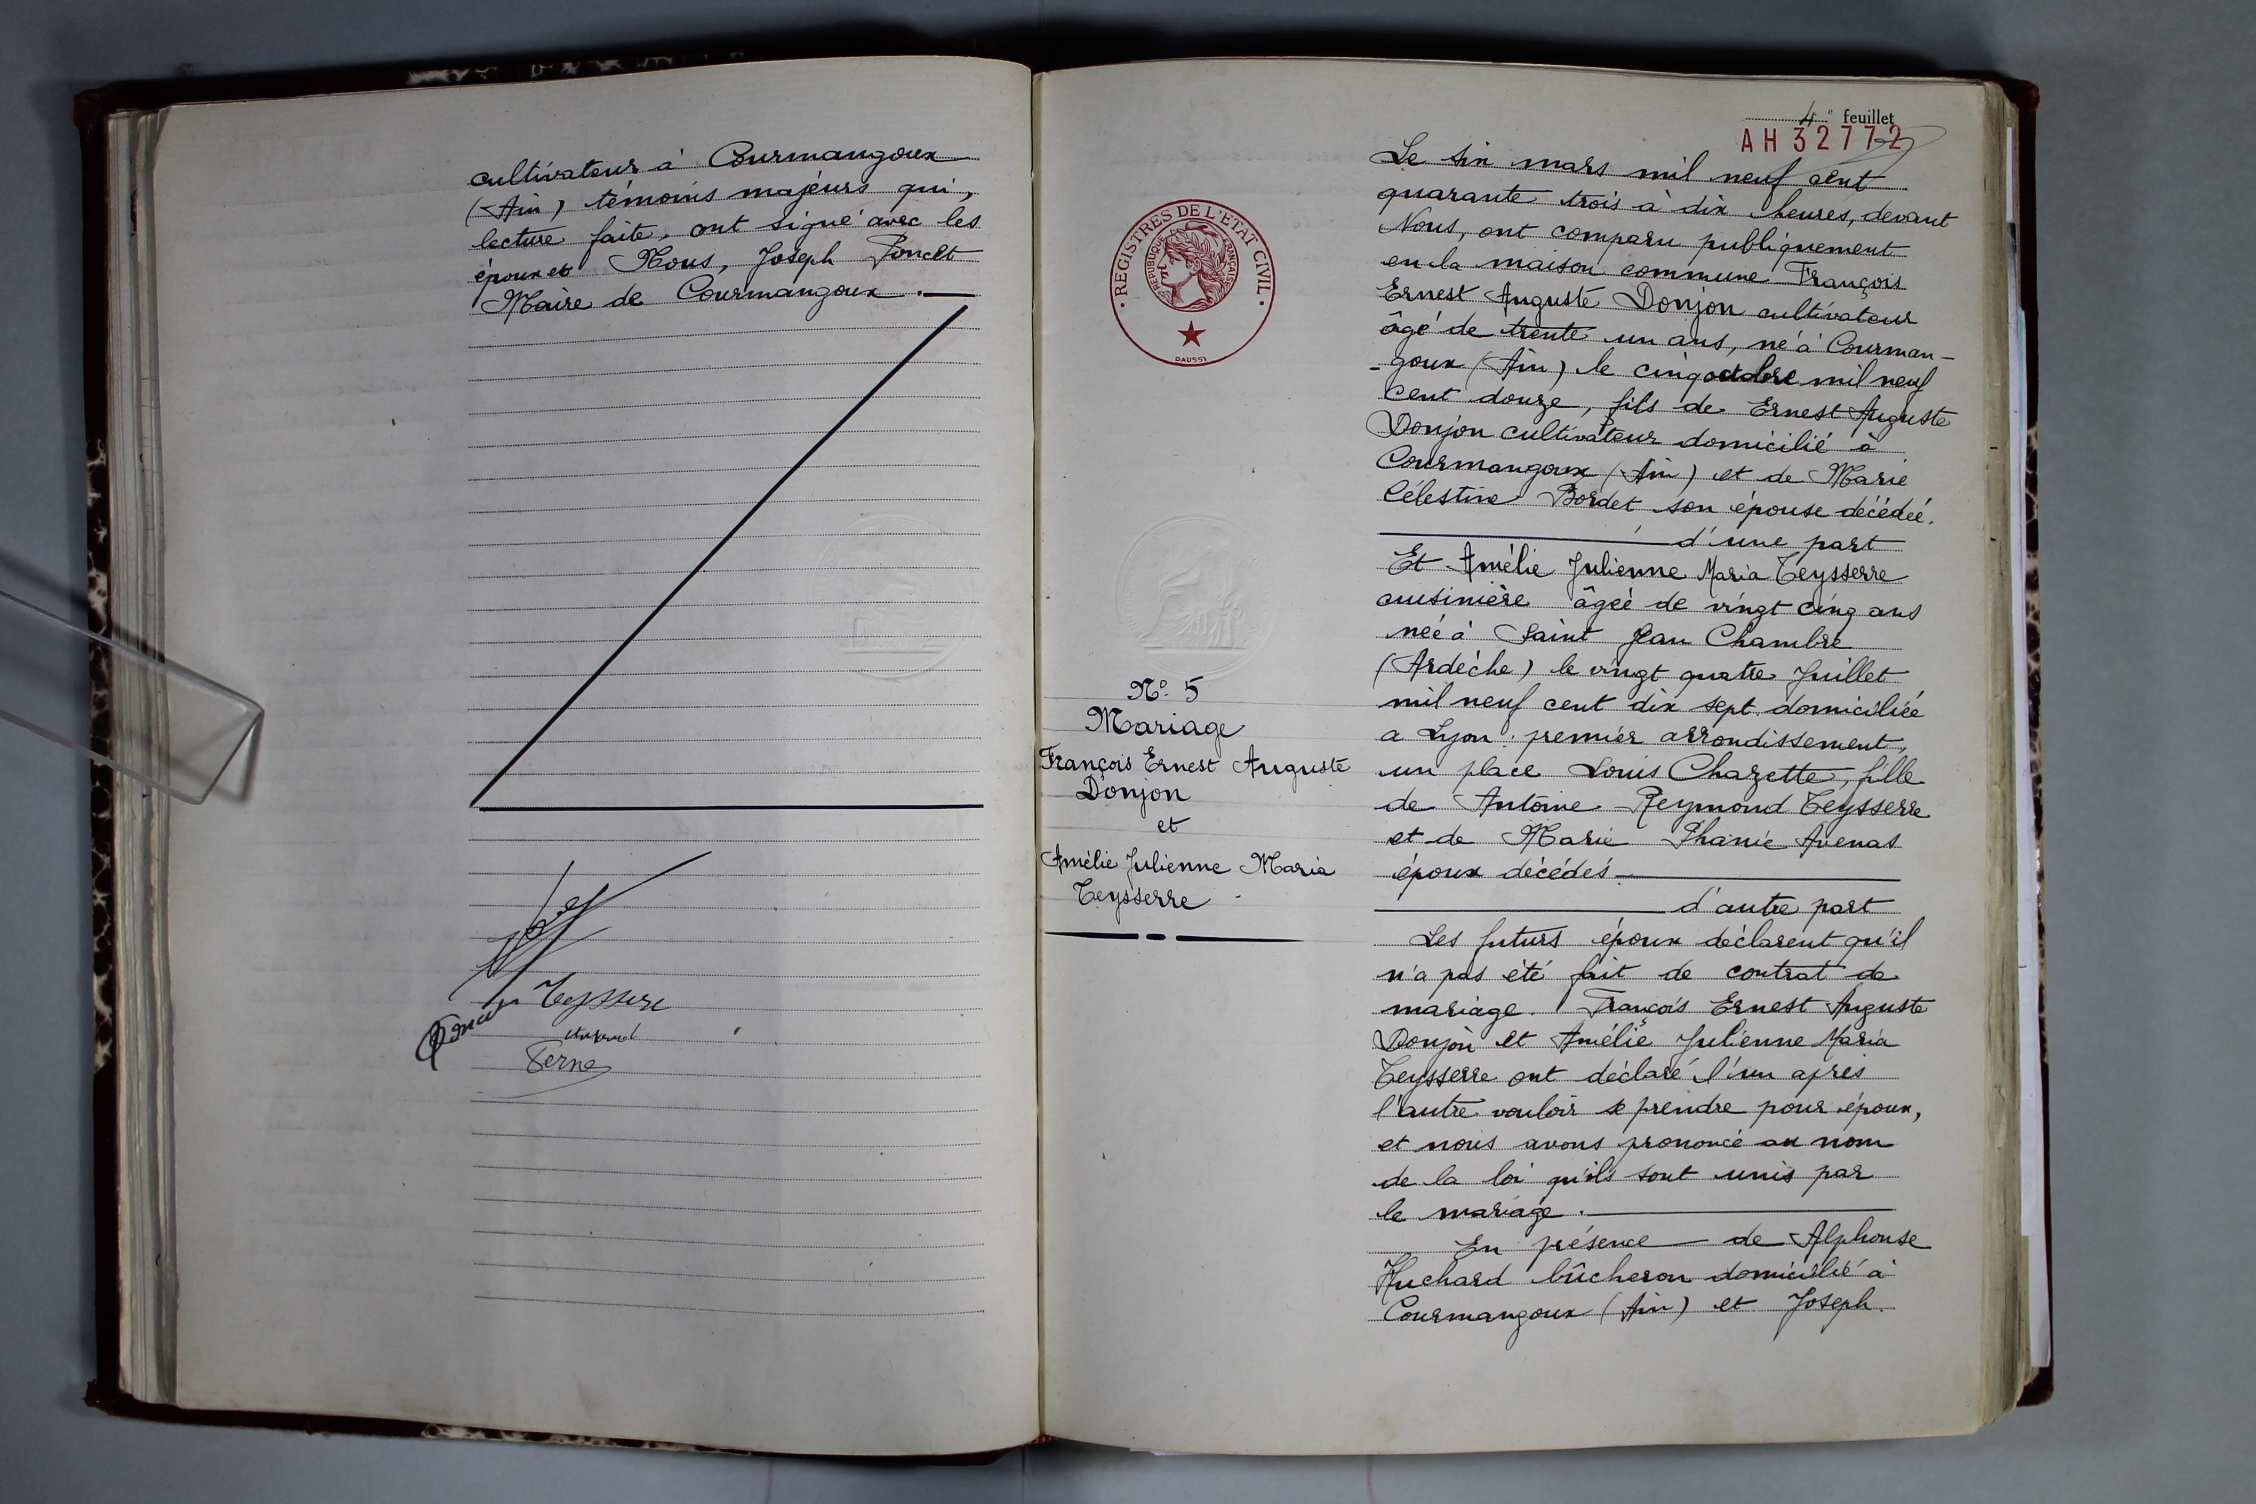 cultivateur à Courmangoux
(Ain) témoins majeurs qui,
lecture faite, ont signé avec les
époux et Nous, Joseph Poncet
Maire de Courmangoux.
Teyssere
Perne
4e feuillet
AH 32772
REGISTRES DE L'ETAT CIVIL
REPUBLIQUE FRANÇAISE
DAUSSY
N° 5
Mariage
François Ernest Auguste
Donjon
et
Amélie Julienne Maria
Teysserre
Le six mars mil neuf cent
quarante trois à dix heures, devant
Nous, ont comparu publiquement
en la maison commune François
Ernest Auguste Donjon cultivateur
âgé de trente un ans, né à Courman-
-goux (Ain) le cinq octobre mil neuf
cent douze, fils de Ernest Auguste
Donjon cultivateur domicilié à
Courmangoux (Ain) et de Marie
Célestine Bordet son épouse décédée.
d'une part
Et Amélie Julienne Maria Teysserre
cuisinière âgée de vingt cinq ans
née à Saint Jean Chambre
(Ardèche) le vingt quatre Juillet
mil neuf cent dix sept domiciliée
a Lyon premier arrondissement,
un place Louis Chazette, fille
de Antoine Reymond Teysserre
et de Marie Phanie Avenas
époux décédés.
d'autre part
Les futurs époux déclarent qu'il
n'a pas été fait de contrat de
mariage. François Ernest Auguste
Donjon et Amélie Julienne Maria
Teysserre ont déclaré l'un après
l'autre vouloir se prendre pour époux,
et nous avons prononcé au nom
de la loi qu'ils sont unis par
le mariage.
En présence de Alphonse
Huchard bûcheron domicilié à
Courmangoux (Ain) et Joseph